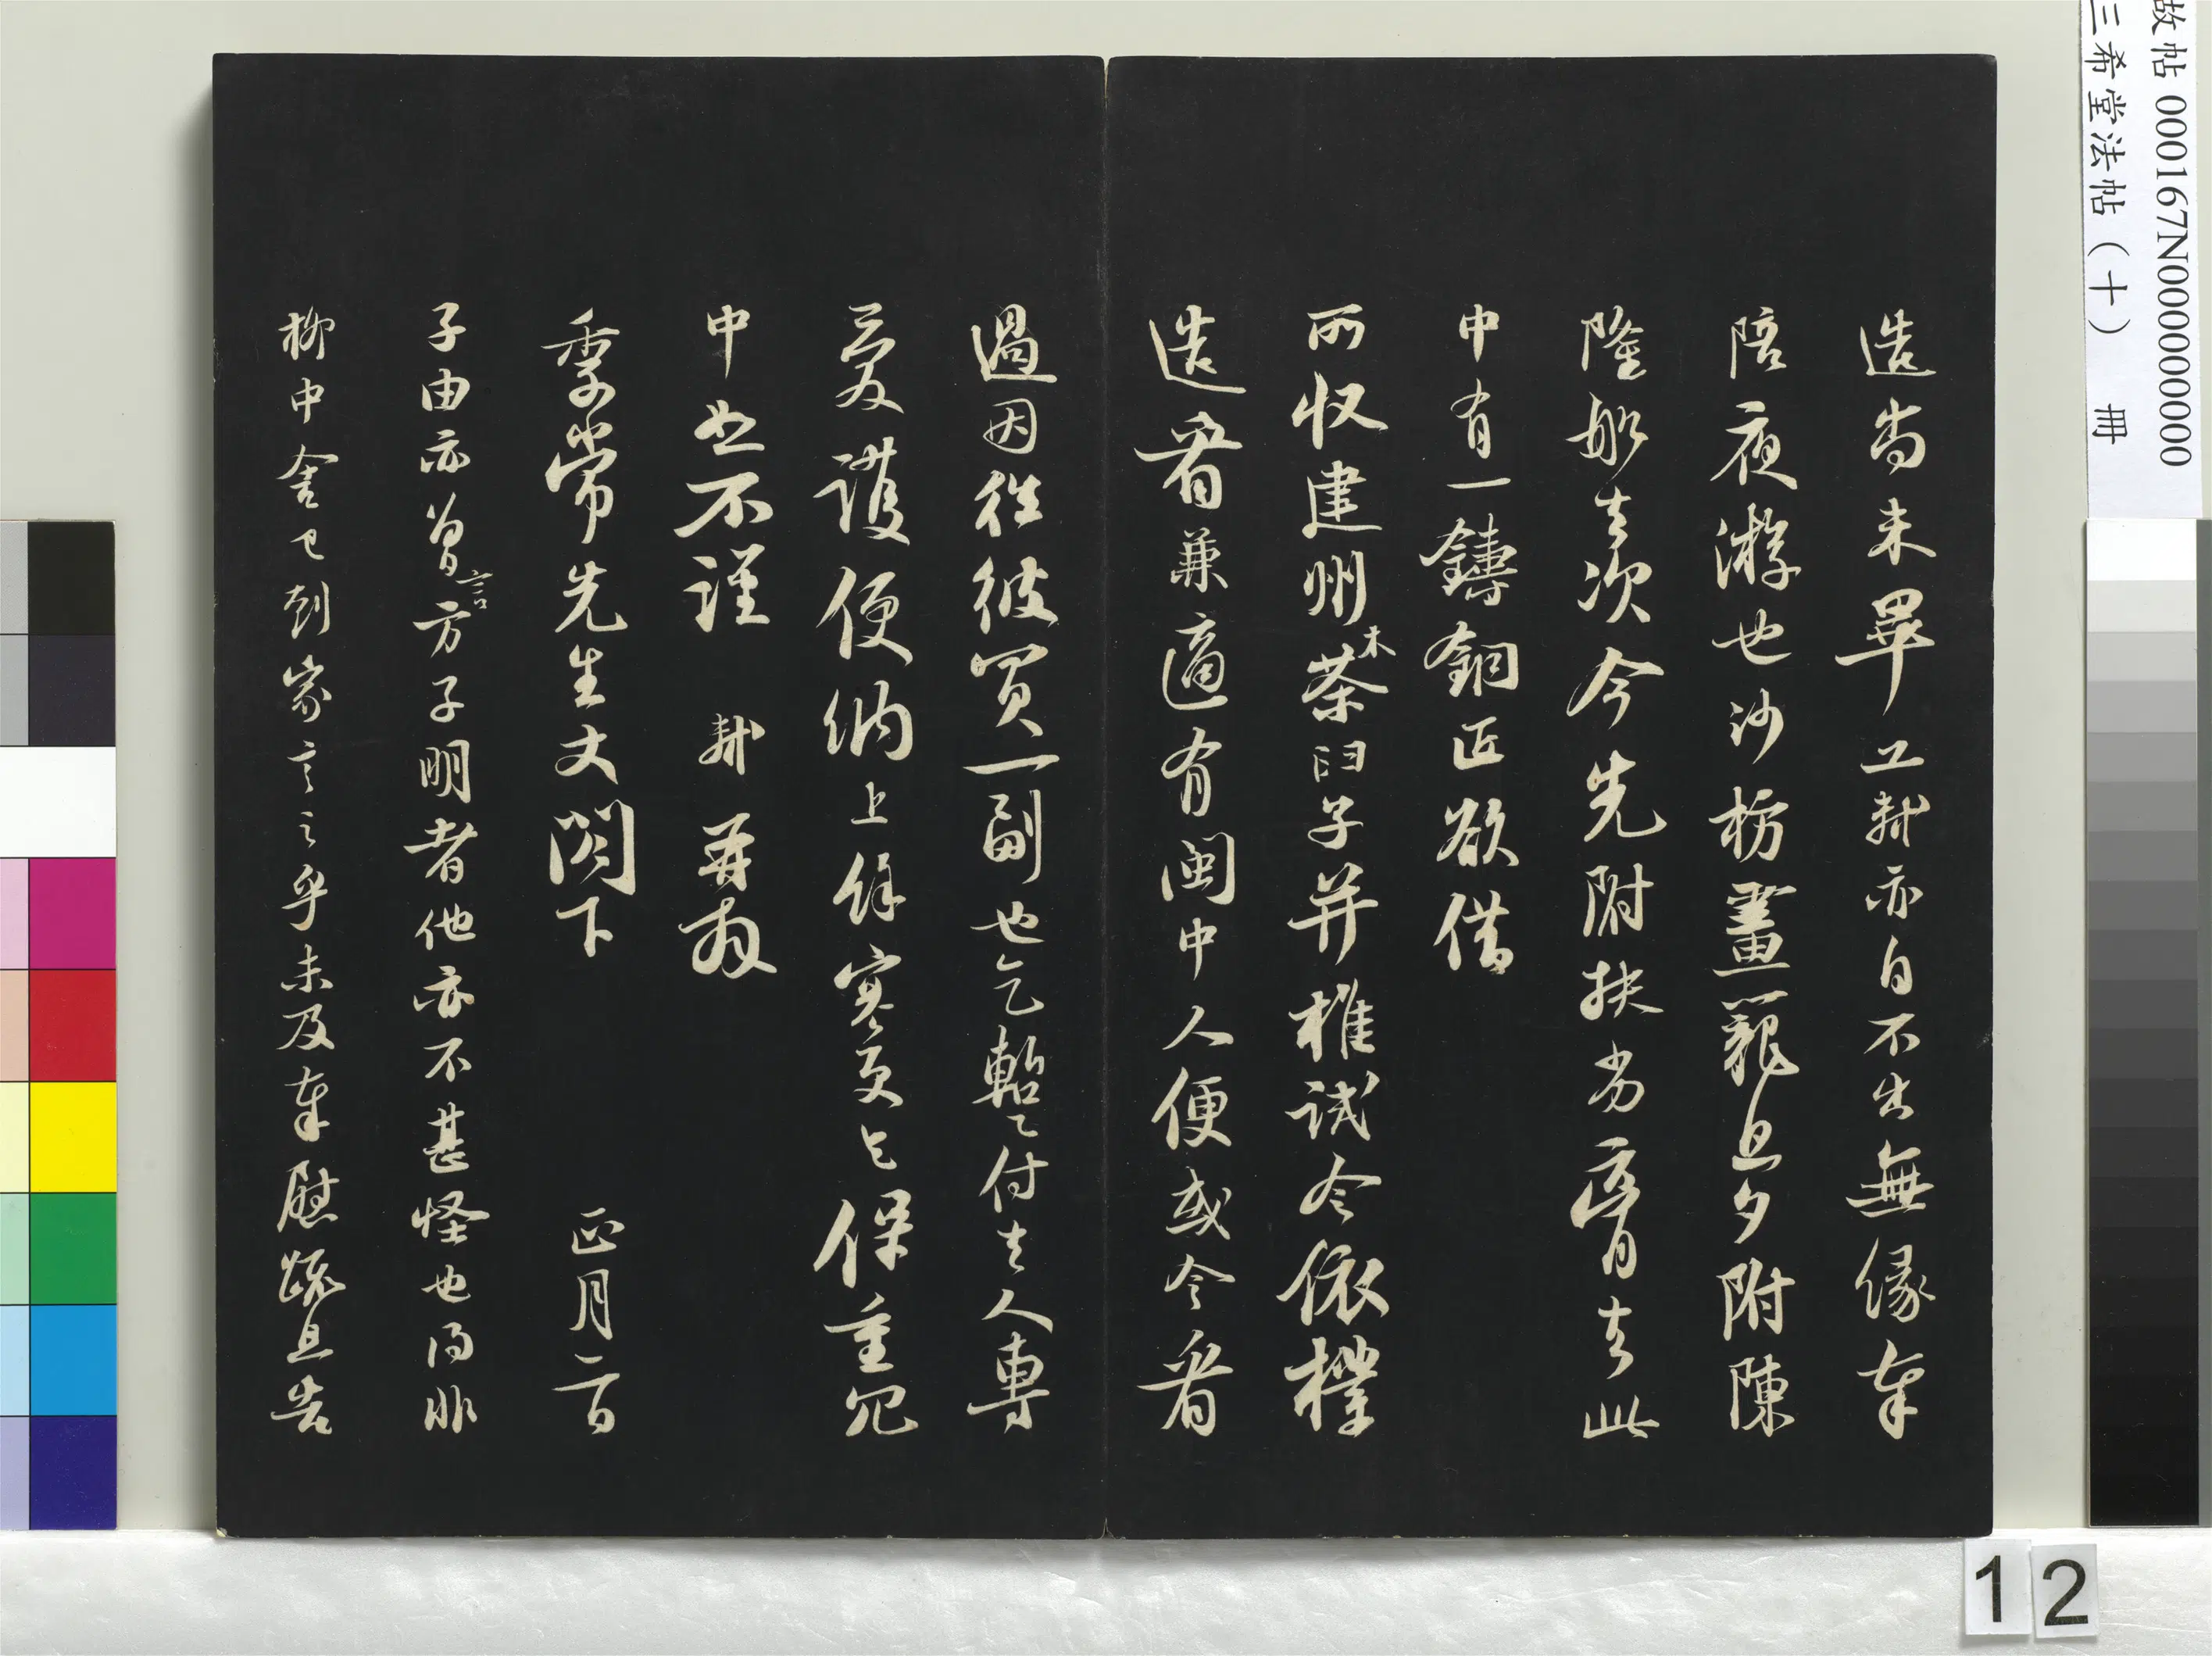 造尚未畢工軾亦自不出無緣奉
陪夜游也沙枋畫籠旦夕附陳
隆船去次今先附扶劣膏去此
中有一鑄銅匠欲借
所收建州木茶臼子并椎試令依樣
造看兼適有閩中人便或令看
過因往彼買一副也乞暫付去人專
愛護便納上餘寒更乞保重冗
中恕不謹 軾再拜
季常先生丈閣下 正月二日
子由亦曾言方子明者他亦不甚怪也得非
柳中舍已到家言之乎未及奉慰疏且告
故帖 000167N000000000
三希堂法帖(十) 冊
12